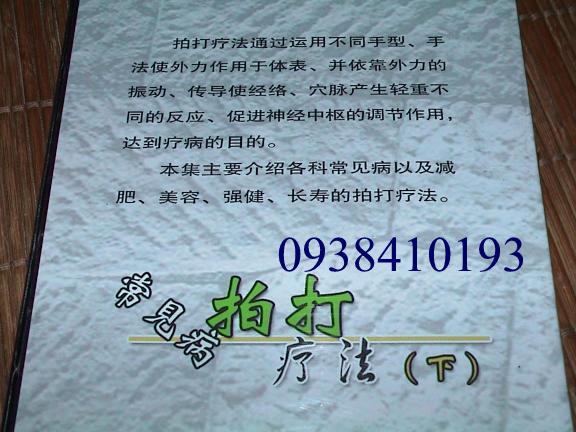 拍打疗法通过运用不同手型、手
法使外力作用于体表、并依靠外力的
振动、传导使经络、穴脉产生轻重不
同的反应、促进神经中枢的调节作用，
达到疗病的目的。
本集主要介绍各科常见病以及减
肥、美容、强健、长寿的拍打疗法。
0938410193
常见病拍打
疗法(下)